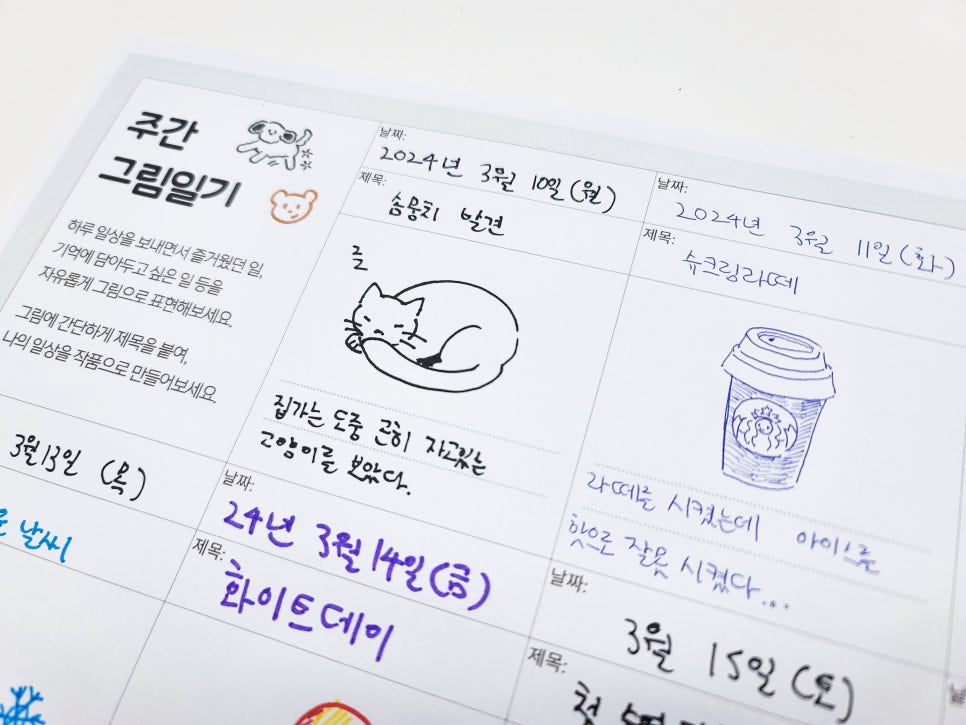 주간
그림일기
하루 일상을 보내면서 즐거웠던 일,
기억에 담아두고 싶은 일 등을
자유롭게 그림으로 표현해보세요.
그림에 간단하게 제목을 붙여,
나의 일상을 작품으로 만들어보세요.
날짜:
2024년 3월 10일 (월)
제목:
솜뭉치 발견
집가는 도중 곤히 자고있는
고양이를 보았다.
날짜:
2024년 3월 11일 (화)
제목:
슈크림라떼
라떼를 시켰는데 아이스를
핫으로 잘못 시켰다...
3월 13일 (목)
날씨
날짜:
24년 3월 14일 (금)
제목:
화이트데이
날짜:
3월 15일 (토)
제목:
첫